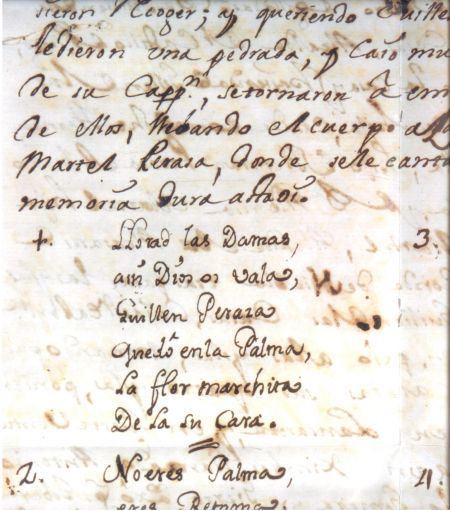 Cooger; y queriendo Guillen
ledieron una pedrada, y Caió mu
de su Cappn., setornaron â em
de ellos, llebando el cuerpo a
Martel Peraza, donde sele canta
memoria dura
1. Llorad las Damas, 3.
aiñ Dios os vala,
Guillen Peraza
Quedô enla Palma,
La flor marchita
De la su Cara.
2. Noeres Palma, 4.
eres Retama,